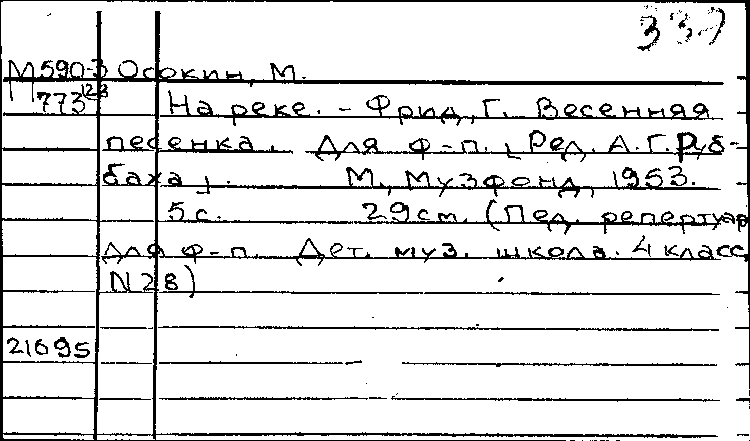 337
М590-3 Осокин, М.
773 128 На реке. - Фрид, Г. Весенняя
песенка. Для ф-п. [Ред. А.Г. Руб-
баха]. М., Музфонд, 1953.
5 с. 29 см. (Пед. репертуар
для ф-п. Дет. муз. школа. 4 класс,
N 28)
21695